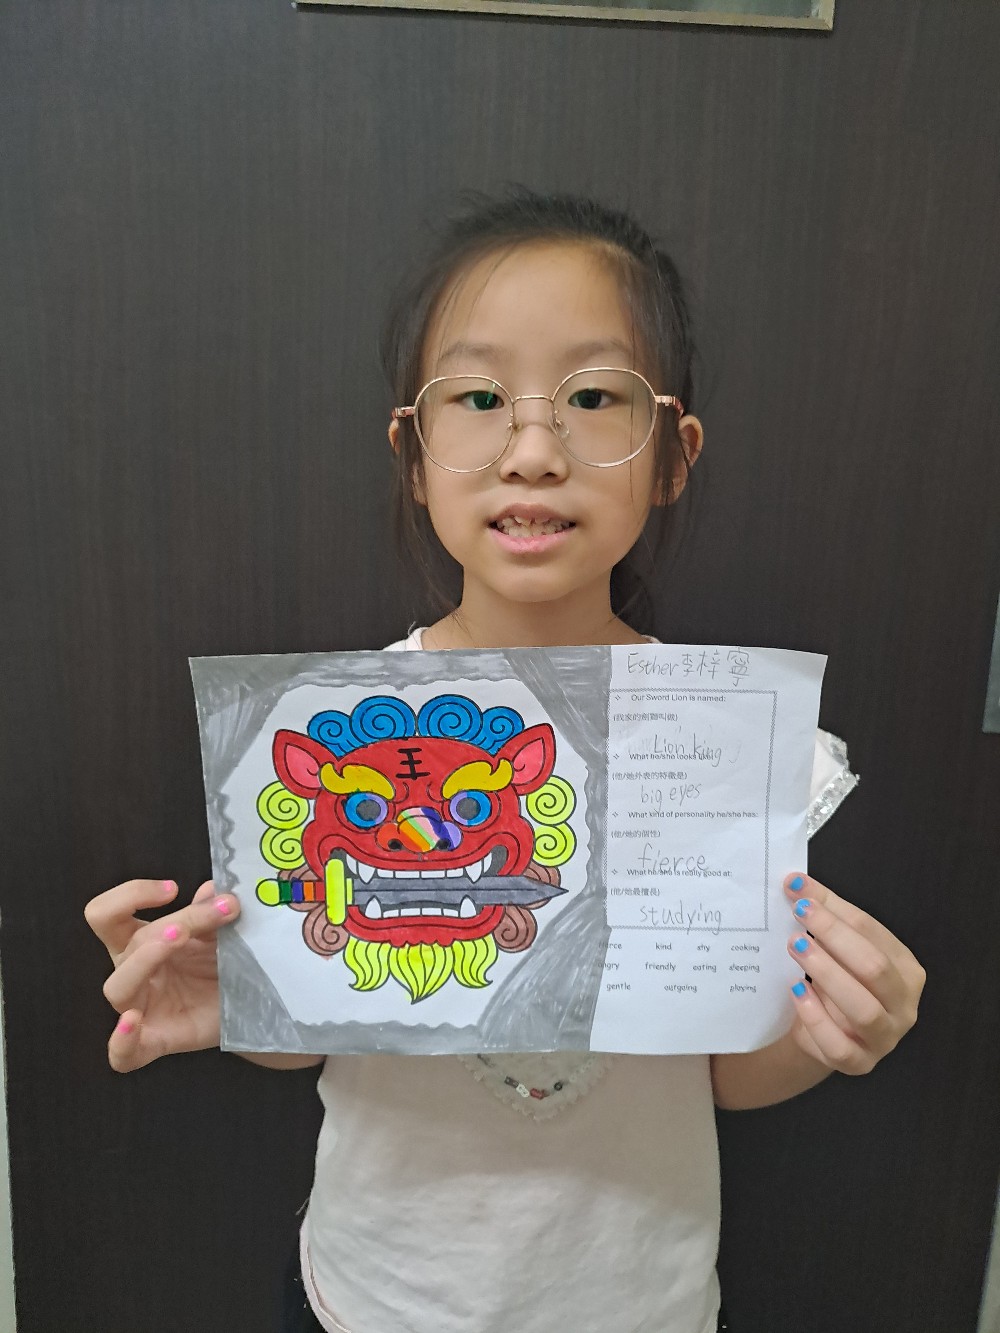 王
Esther 李梓寧
Our Sword Lion is named:
(我家的劍獅叫做)
Lion king
What he/she looks like:
(他/她外表的特徵是)
big eyes
What kind of personality he/she has:
(他/她的個性)
fierce
What he/she is really good at:
(他/她最擅長)
studying
fierce kind shy cooking
angry friendly eating sleeping
gentle outgoing playing